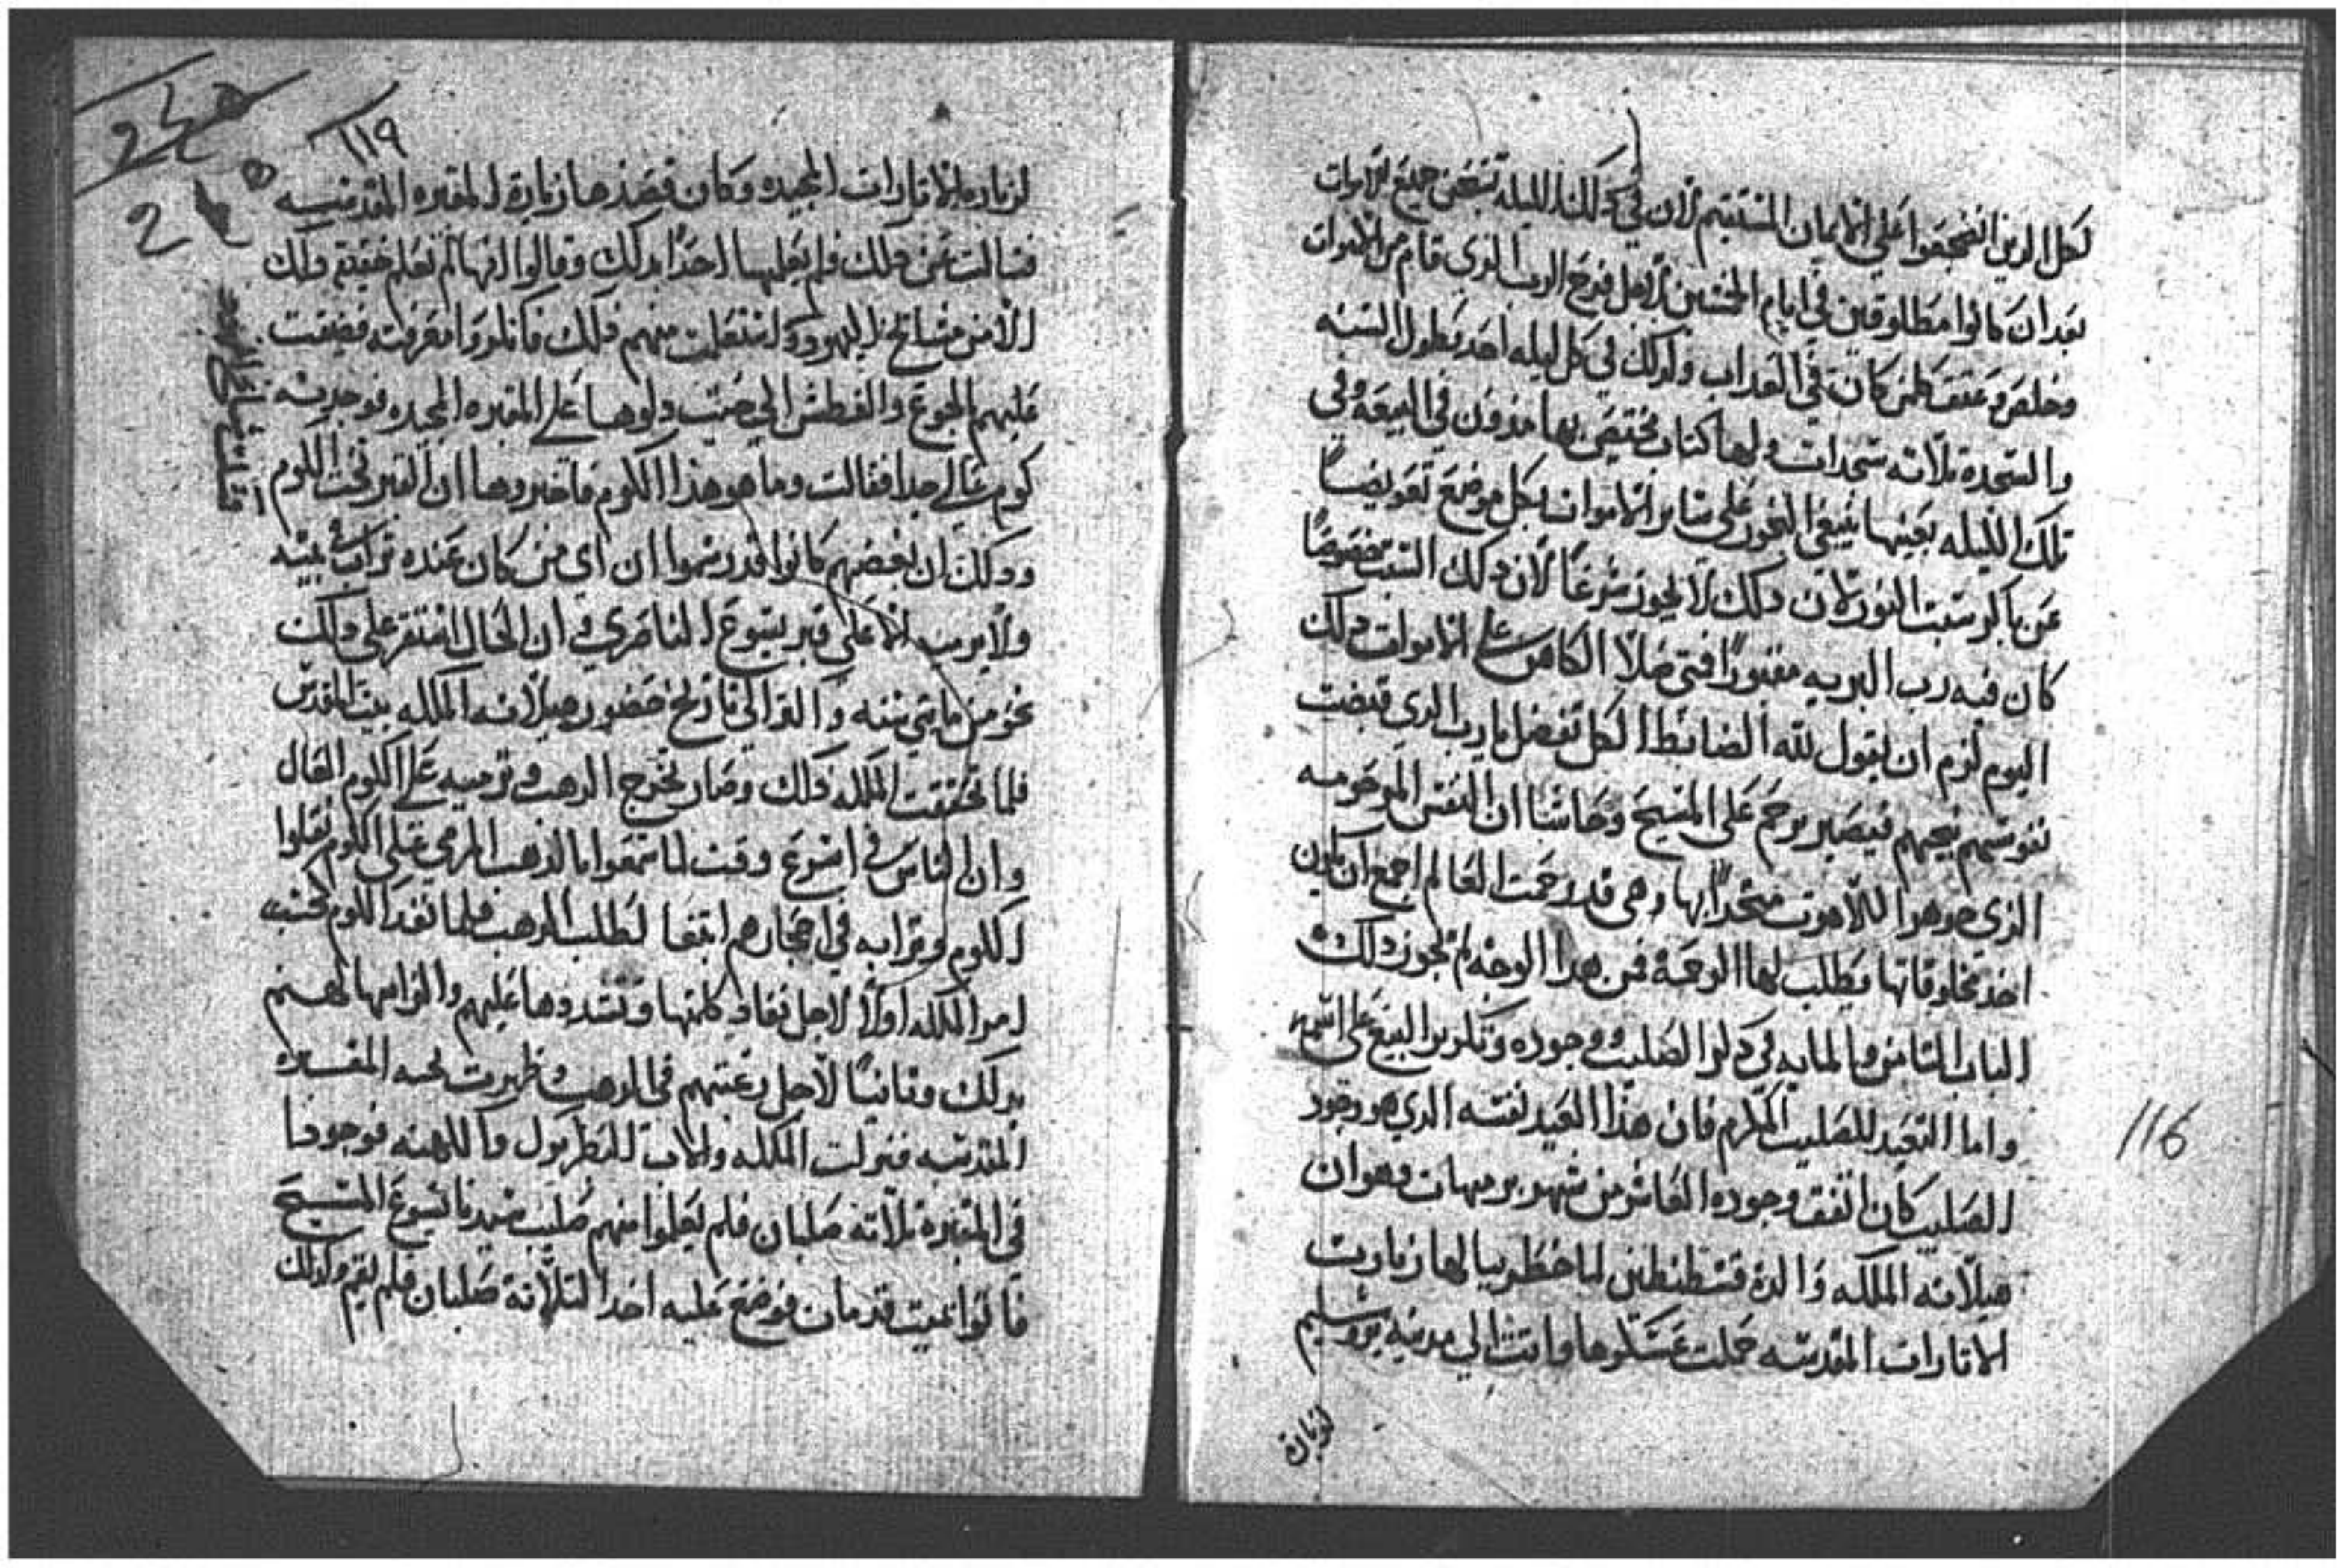 لكل الذين انضجعوا على الايمان المستقيم لان في دلك الليله تنتهض جميع الاموات
بعد ان كانوا مطلوقين في ايام الخمسين لاجل فرح الرب الذي قام من الاموات
وخلص وعتق لمن كان في العذاب ولدلك في كل ليله احد بطول السنه
والسجده ثلاثه سجدات ولها كتاب يختص بها مدون في البيعه وفي
تلك الليله بعينها ينبغي البخور على سائر الاموات بكل موضع تعويضاً
عن باكر سبت النور لان دلك لا يجوز شرعاً لان دلك السبت خصوصاً
كان فيه رب البريه مقبوراً فمتى صلا الكاهن على الاموات دلك
اليوم لزم ان يقول لله الضابط الكل تفضل يا رب الدي قبضت
نفوسهم نيحهم فيصير يرحم على المسيح وحاشا ان النفس المرحومه
الذي جوهر اللاهوت متحداً بها وهي قد رحمت العالم اجمع ان يكون
احد مخلوقاتها يطلب لها الرحمة فمن هدا الوجه لم يجوز دلك
الباب الثامن والمايه في دكر الصليب ووجوده وتكريز البيع على اسمه
واما التعيد للصليب المكرم فان هذا العيد نفسه الدي هو وجود
الصليب كان اتفق وجوده العاشر من شهر برمهات وهو ان
هيلانه الملكه والدة قسطنطين لما خطر ببالها زيارت
الاتارات المقدسه حملت عسكرها واتت الي مدينه يروشليم
لزيارة
116
١١٩
لزياره الاتارات المجيده وكان قصدها زيارة المقبره المقدسه
فسالت عن دلك ولم يعلمها احداً بدلك وقالوا انها لم نعلم حقيقة دلك
الا من مشايخ اليهود واستعلت منهم دلك فانكروا معرفته فضيقت
عليهم بالجوع والعطش الي حيت دلوها على المقبره المجده فوجدته
كوم عالي جدا فقالت وما هو هذا الكوم فاخبروها ان القبر تحت الكوم
ودلك ان بعضهم كانوا قد رسموا ان اي من كان عنده تراب في بيته
ولا يرميه الا على قبر يسوع الناصري في ان الحال استقر على دلك
نحو من مايتي سنه والتراب الي تاريخ حضور هيلانه الملكه بيت المقدس
فلما تحققت الملكه دلك وصار تخرج الدهب وترميه على الكوم العال
وان الناس في اسرع وقت لما سمعوا بالذهب المرمي على الكوم نقلوا
الكوم وترابه في احجارهم ابتغا لطلب الدهب فلما نفد الكوم بحسب
امر الملكه اولاً لاجل نفاذ كلمتها وتشددها عليهم والزامها لهم
بدلك وتانياً لاجل رغبتهم في الدهب وظهرت لهم المقبره
المقدسه فنزلت الملكه والاب البطريرك والكهنه فوجدوا
في المقبره ثلاثه صلبان فلم يعلموا منهم صليب سيدنا يسوع المسيح
فاتوا بميت قد مات فوضع عليه احد الثلاثة صلبان فلم يقم وكدلك